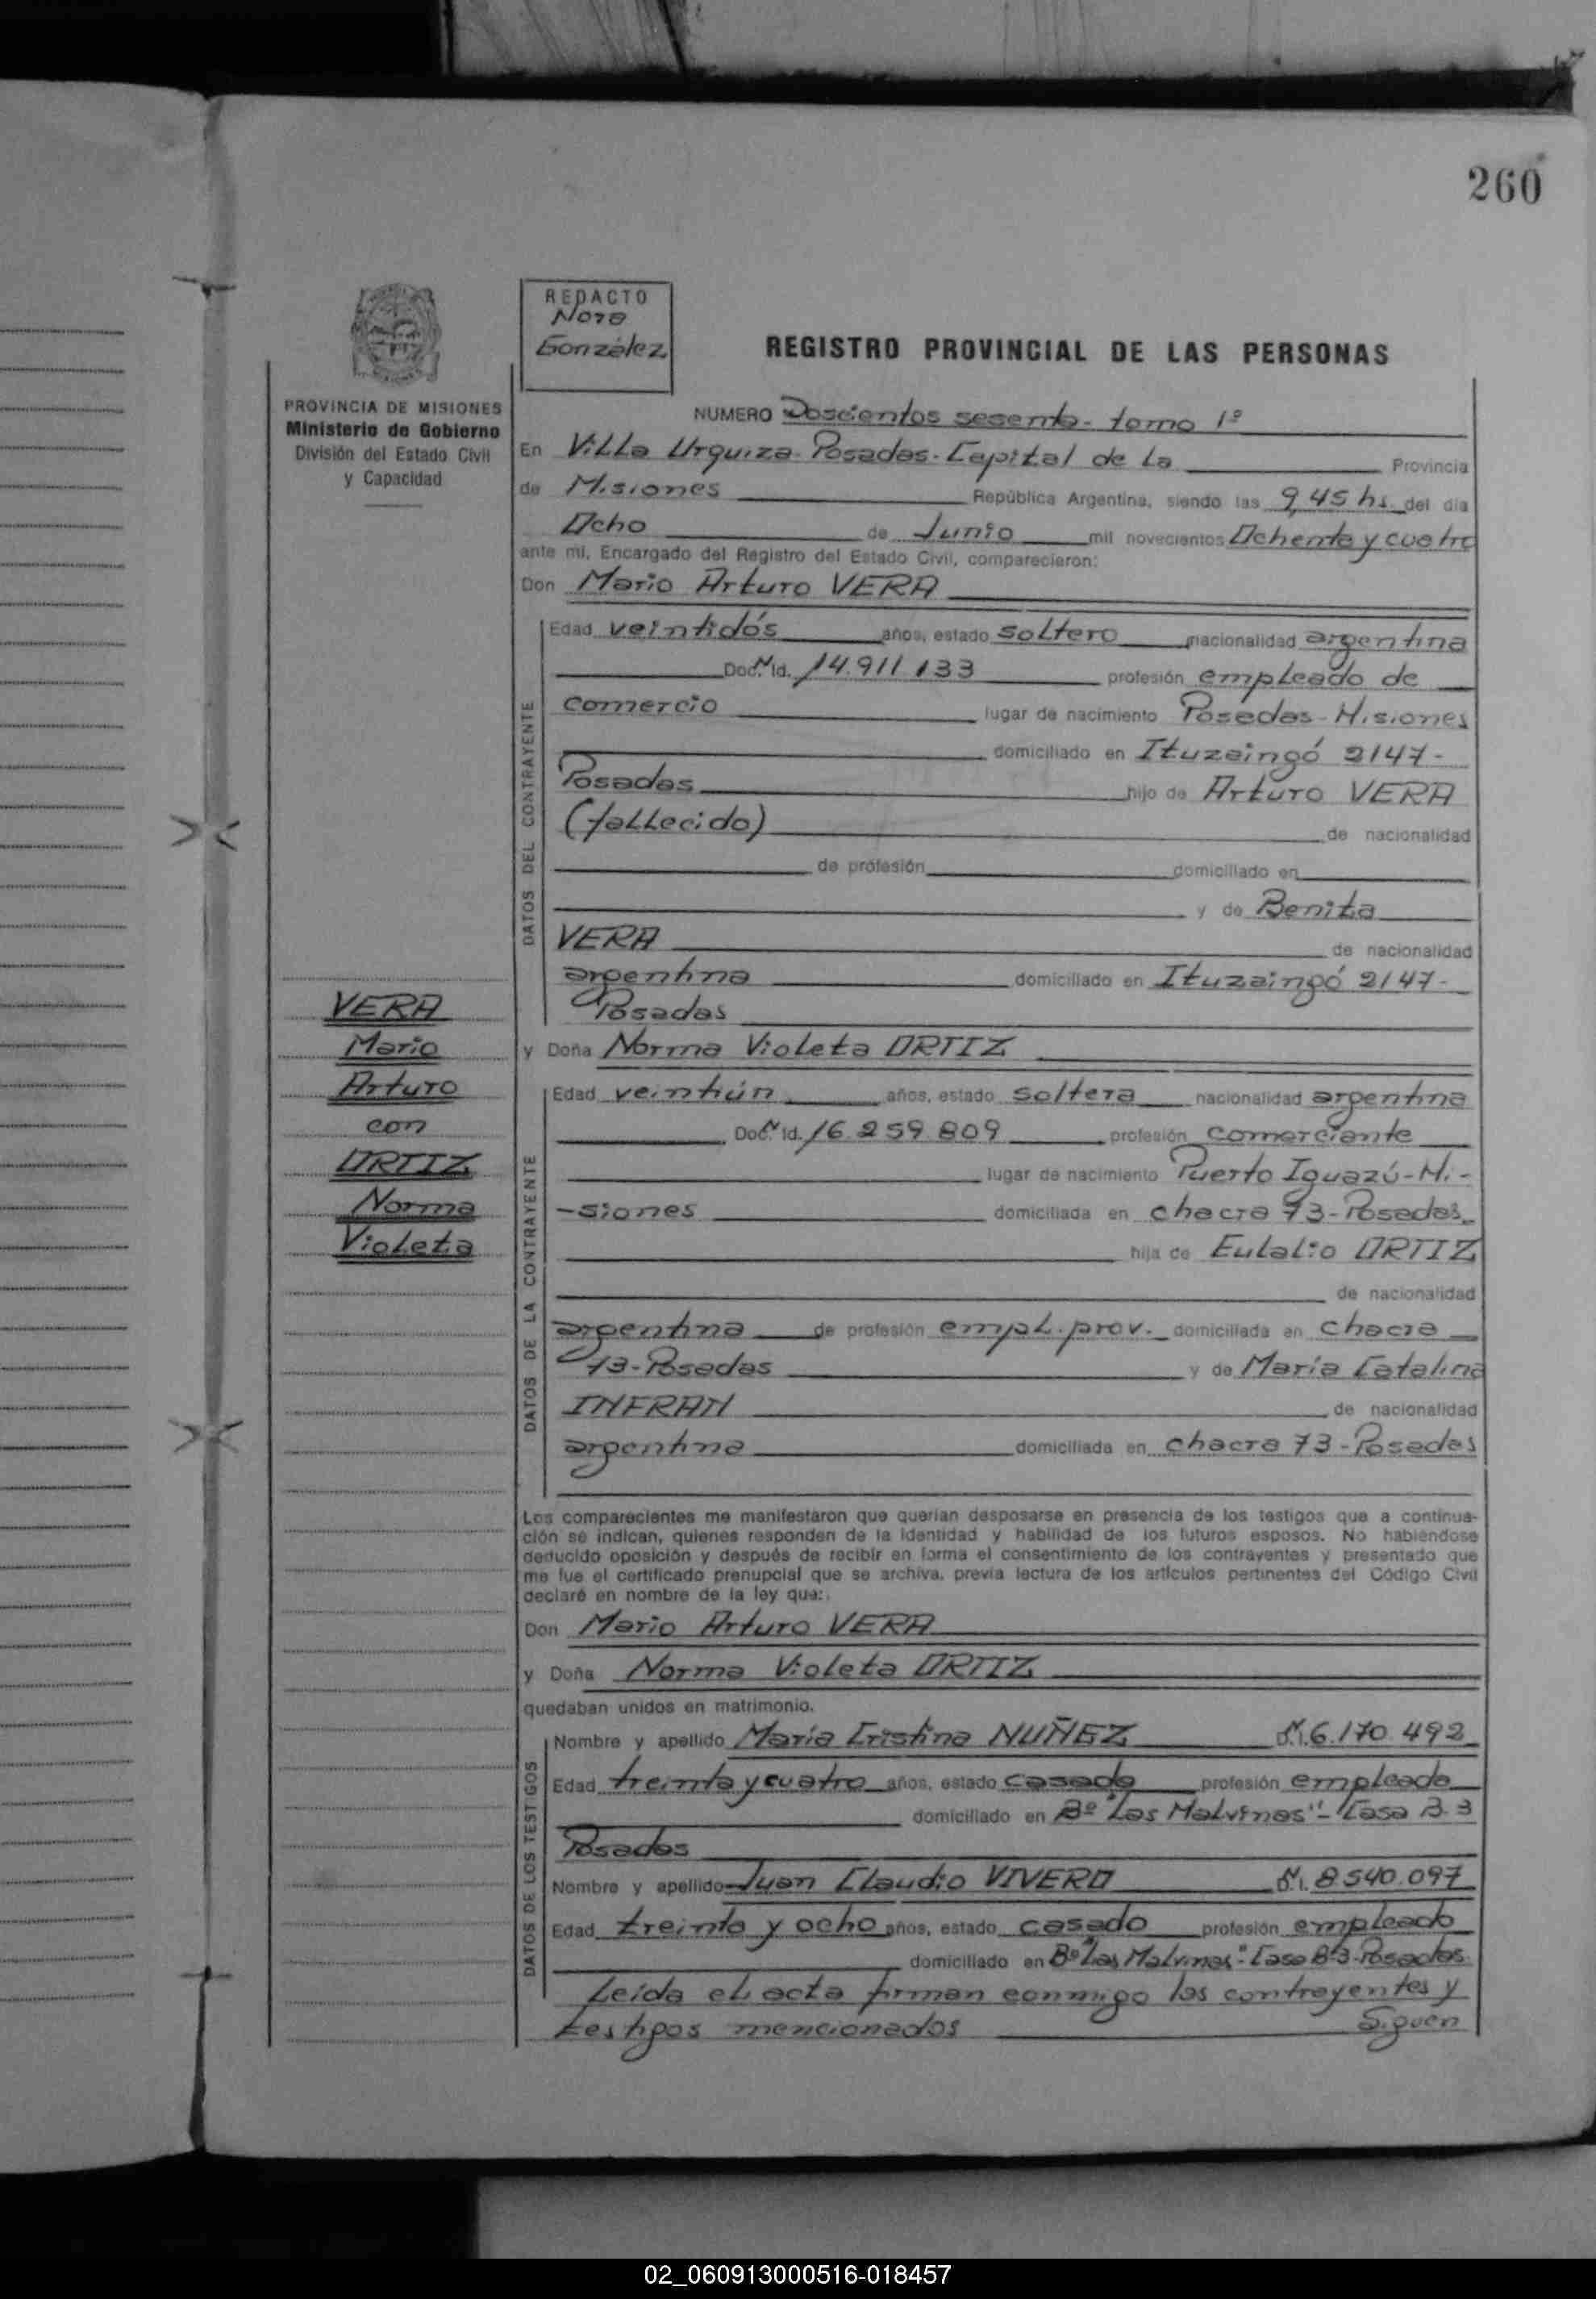 260
REDACTO
Nora
González
REGISTRO PROVINCIAL DE LAS PERSONAS
PROVINCIA DE MISIONES
Ministerio de Gobierno
División del Estado Civil
y Capacidad
NUMERO Doscientos sesenta - tomo 1º
En Villa Urquiza - Posadas - Capital de la Provincia
de Misiones República Argentina, siendo las 9,45 hs. del día
Ocho de Junio mil novecientos Ochenta y cuatro
ante mí, Encargado del Registro del Estado Civil, comparecieron:
Don Mario Arturo VERA
DATOS DEL CONTRAYENTE
Edad veintidós años, estado soltero nacionalidad argentina
Doc. N Id. 14.911.133 profesión empleado de
comercio lugar de nacimiento Posadas - Misiones
domiciliado en Ituzaingó 2147 -
Posadas hijo de Arturo VERA
(fallecido) de nacionalidad
de profesión domiciliado en
y de Benita
VERA de nacionalidad
argentina domiciliado en Ituzaingó 2147 -
Posadas
VERA
Mario
Arturo
con
ORTIZ
Norma
Violeta
y Doña Norma Violeta ORTIZ
DATOS DE LA CONTRAYENTE
Edad veintiún años, estado soltera nacionalidad argentina
Doc. N Id. 16.259.809 profesión comerciante
lugar de nacimiento Puerto Iguazú - Mi -
- siones domiciliada en chacra 73 - Posadas
hija de Eulalio ORTIZ
de nacionalidad
argentina de profesión empl. prov. domiciliada en chacra
73 - Posadas y de María Catalina
INFRAN de nacionalidad
argentina domiciliada en chacra 73 - Posadas
Los comparecientes me manifestaron que querían desposarse en presencia de los testigos que a continua-
ción se indican, quienes responden de la identidad y habilidad de los futuros esposos. No habiéndose
deducido oposición y después de recibir en forma el consentimiento de los contrayentes y presentado que
me fue el certificado prenupcial que se archiva, previa lectura de los artículos pertinentes del Código Civil
declaré en nombre de la ley que:
Don Mario Arturo VERA
y Doña Norma Violeta ORTIZ
quedaban unidos en matrimonio.
DATOS DE LOS TESTIGOS
Nombre y apellido María Cristina NUÑEZ 6.170.492
Edad treinta y cuatro años, estado casada profesión empleada
domiciliado en Bº "Las Malvinas" - Casa B.3
Posadas
Nombre y apellido Juan Claudio VIVERO 8.540.097
Edad treinta y ocho años, estado casado profesión empleado
domiciliado en Bº "Las Malvinas" - Casa B-3 - Posadas
Leída el acta firman conmigo los contrayentes y
testigos mencionados Siguen
02_060913000516-018457